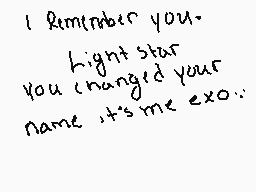 I Remember you.
Light star
You changed your
name it's me exo..